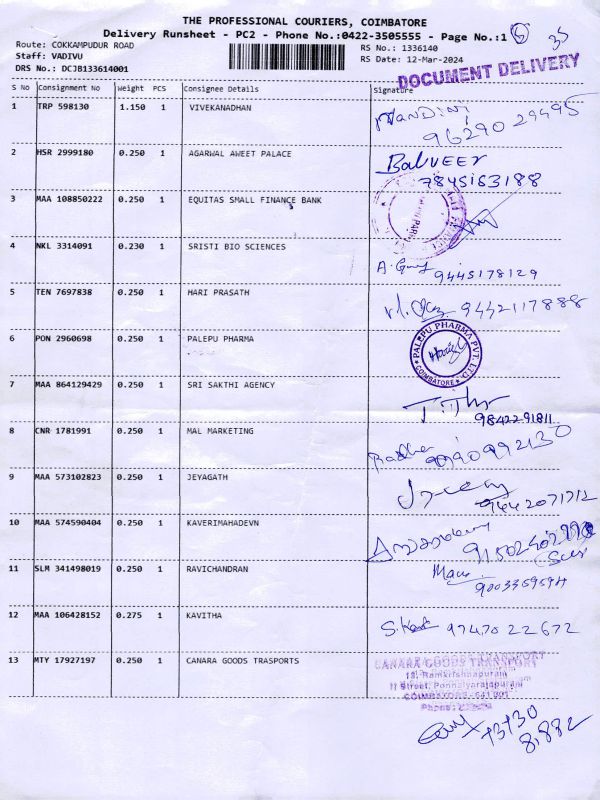 THE PROFESSIONAL COURIERS, COIMBATORE
Delivery Runsheet - PC2 - Phone No.:0422-3505555 - Page No.:1
35
Route: COKKAMPUDUR ROAD
Staff: VADIVU
DRS No.: DCJB133614001
RS No.: 1336140
RS Date: 12-Mar-2024
DOCUMENT DELIVERY
S No Consignment No Weight PCS Consignee Details Signature
1 TRP 598130 1.150 1 VIVEKANADHAN
NANDINI
96290 29495
2 HSR 2999180 0.250 1 AGARWAL AWEET PALACE
BALVEER
7845163188
3 MAA 108850222 0.250 1 EQUITAS SMALL FINANCE BANK
4 NKL 3314091 0.230 1 SRISTI BIO SCIENCES
9445178129
5 TEN 7697838 0.250 1 HARI PRASATH
9442117888
6 PON 2960698 0.250 1 PALEPU PHARMA
PALEPU PHARMA PVT. LTD.
COIMBATORE
7 MAA 864129429 0.250 1 SRI SAKTHI AGENCY
9842291811
8 CNR 1781991 0.250 1 MAL MARKETING
9 MAA 573102823 0.250 1 JEYAGATH
9442071712
10 MAA 574590404 0.250 1 KAVERIMAHADEVN
11 SLM 341498019 0.250 1 RAVICHANDRAN
12 MAA 106428152 0.275 1 KAVITHA
97470 22672
13 MTY 17927197 0.250 1 CANARA GOODS TRASPORTS
CANARA GOODS TRANSPORT
12, Ramkrishnapuram
11 Street, Ponnaiyarajapuram
COIMBATORE - 641 001
Phone:
73730
8,882